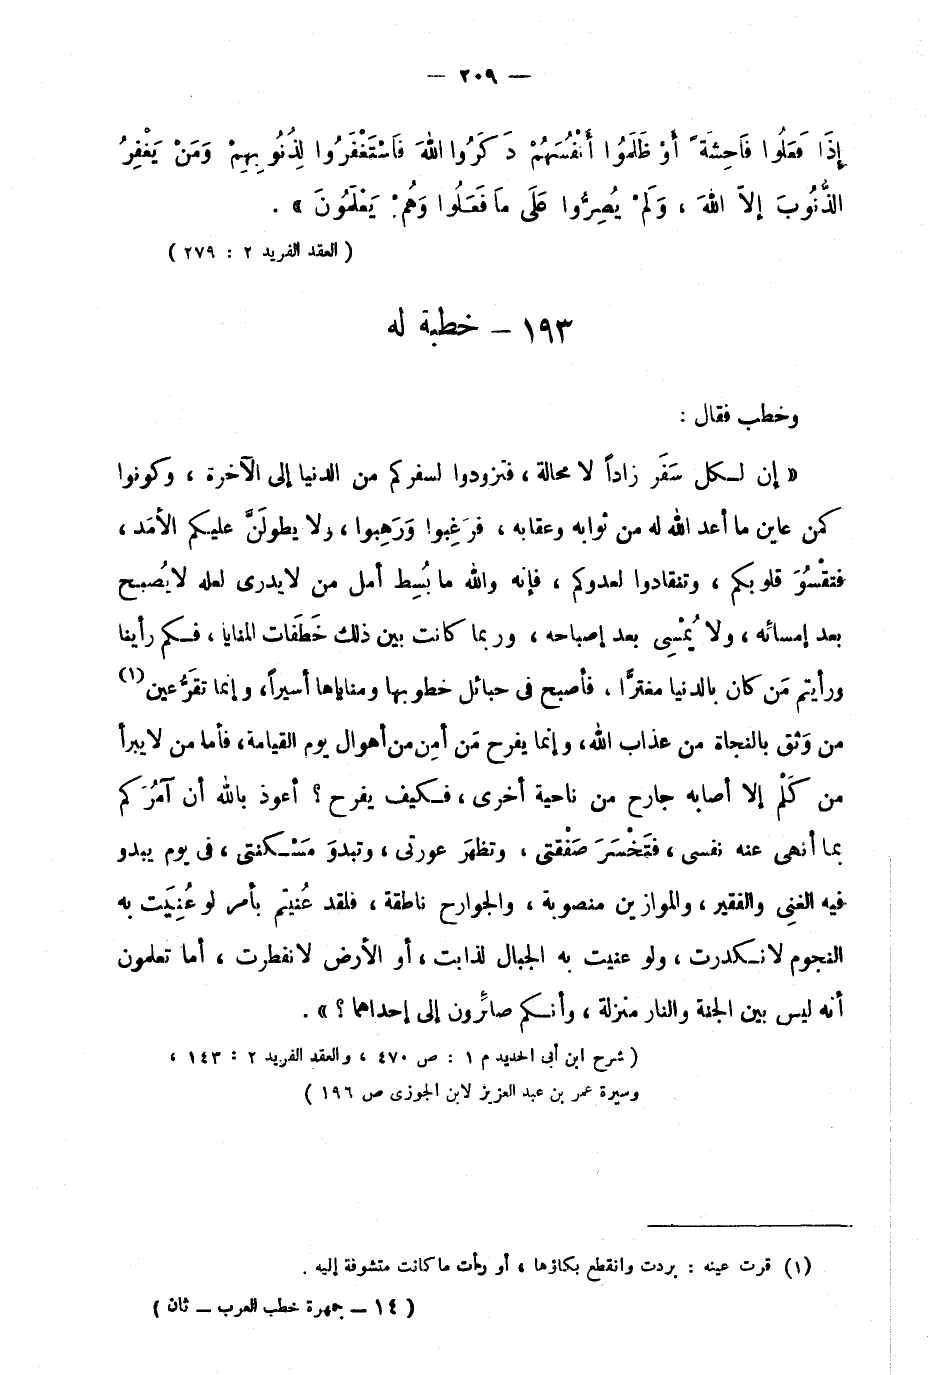 — ٢٠٩ —
إِذَا فَعَلُوا فَاحِشَةً أَوْ ظَلَمُوا أَنْفُسَهُمْ ذَكَرُوا اللهَ فَاسْتَغْفَرُوا لِذُنُوبِهِمْ وَمَنْ يَغْفِرُ
الذُّنُوبَ إِلاَّ اللهَ ، وَلَمْ يُصِرُّوا عَلَى مَا فَعَلُوا وَهُمْ يَعْلَمُونَ » .
( العقد الفريد ٢ : ٢٧٩ )
١٩٣ – خطبة له
وخطب فقال :
« إن لكل سَفَر زاداً لا محالة ، فتزودوا لسفركم من الدنيا إلى الآخرة ، وكونوا
كمن عاين ما أعد الله له من ثوابه وعقابه ، فرَغِبوا وَرَهِبوا ، ولا يطولَنَّ عليكم الأمَد ،
فتقْسُوَ قلوبكم ، وتنقادوا لعدوكم ، فإنه والله ما بُسِط أمل من لايدرى لعله لايُصبح
بعد إمسائه ، ولا يُمْسِى بعد إصباحه ، وربما كانت بين ذلك خَطَفات المنايا ، فكم رأينا
ورأيتم مَن كان بالدنيا مغترًّا . فأصبح فى حبائل خطوبها ومناياها أسيراً، وإنما تقَرُّ عين(١)
من وَثق بالنجاة من عذاب الله ، وإنما يفرح مَن أمِن من أهوال يوم القيامة، فأما من لايبرأ
من كَلْم إلا أصابه جارح من ناحية أخرى ، فكيف يفرح ؟ أعوذ بالله أن آمُرَكم
بما أنهى عنه نفسى ، فتَخْسَرَ صَفْقتى ، وتظهَر عورتى ، وتبدوَ مَسْكنتى ، فى يوم يبدو
فيه الغنِى والفقير ، والموازين منصوبة ، والجوارح ناطقة ، فلقد عُنيتم بأمر لو عُنِيَت به
النجوم لانكدرت ، ولو عنيت به الجبال لذابت ، أو الأرض لانفطرت ، أما تعلمون
أنه ليس بين الجنة والنار منزلة ، وأنكم صائرون إلى إحداهما ؟ » .
( شرح ابن أبى الحديد م ١ : ص ٤٧٠ ، والعقد الفريد ٢ : ١٤٣ ،
وسيرة عمر بن عبد العزيز لابن الجوزى ص ١٩٦ )
(١) قرت عينه : بردت وانقطع بكاؤها ، أو رأت ما كانت متشوفة إليه .
( ١٤ – جمهرة خطب العرب – ثان )